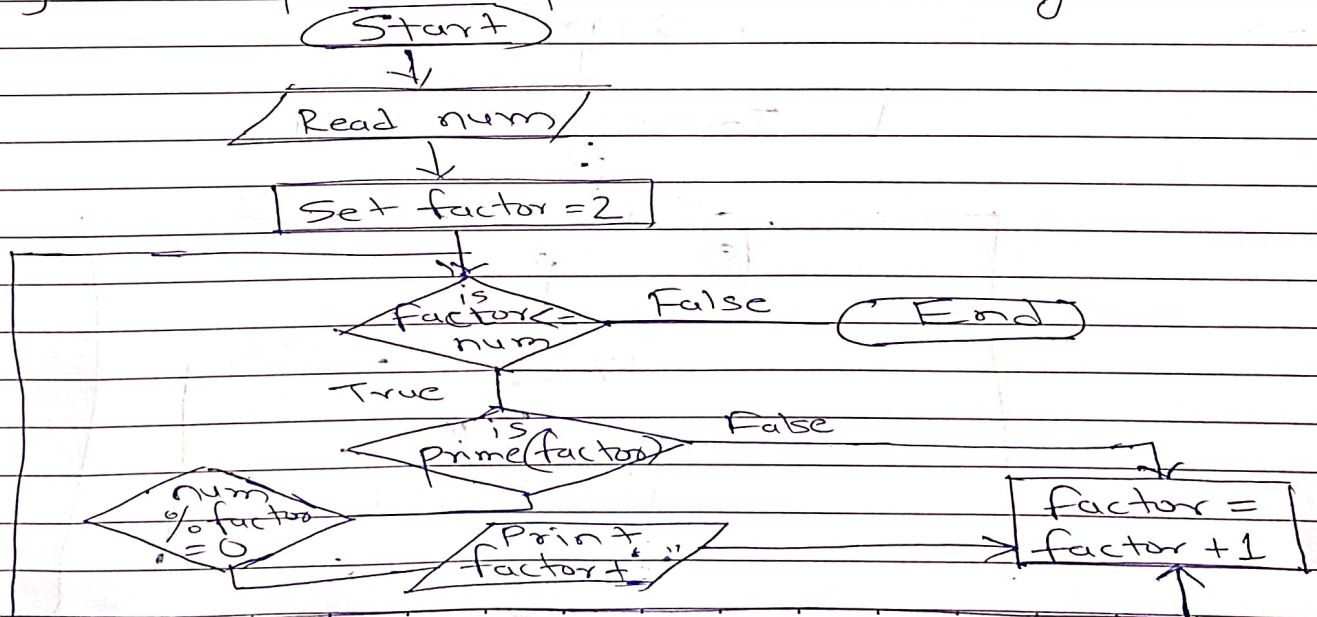 Start
Read num
Set factor = 2
is
factor <=
num
False
End
True
is
prime(factor)
False
num
% factor
= 0
Print
factor + " "
factor =
factor + 1